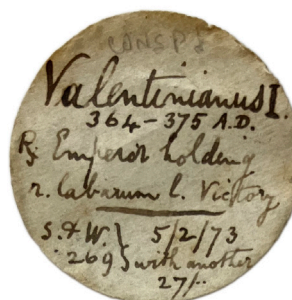 CONSP§
Valentinianus I.
364-375 A.D.
R. Emperor holding
r. labarum l. Victory
S.&W. } 5/2/73
269 } with another
27/-